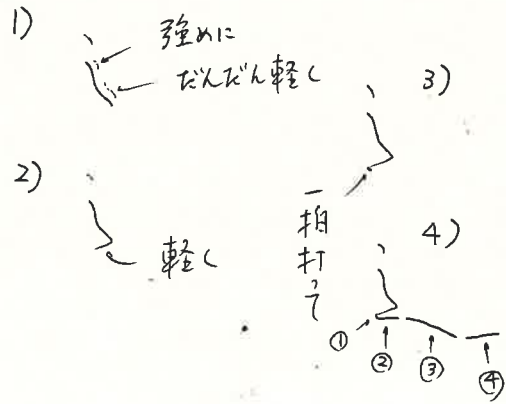 1)
強めに
だんだん軽く
2)
軽く
3)
一拍打って
4)
①
②
③
④